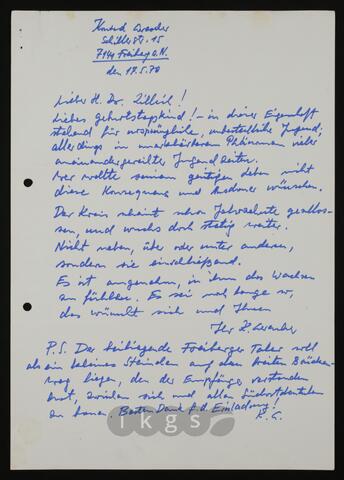 Konrad
Schillerstr. 15
7141 Freiberg a.N.
den 17.5.78
Lieber H. Dr. Zillich!
Liebes Geburtstagskind! – in dieser Eigenschaft
stehend für ursprüngliche, unbestechliche Jugend,
allerdings in unwiederholbarem Phänomen vieler
aneinandergereihter Jugendzeiten.
Wer wollte seinem geistigen Leben nicht
diese Konsequenz und Ausdauer wünschen.
Der Kreis scheint schon Jahrzehnte geschlos-
sen, und wuchs doch stetig weiter.
Nicht neben, über oder unter anderen,
sondern sie einschließend.
Es ist angenehm, in ihm das Wachsen
zu fühlen. Es sei noch lange so,
das wünscht sich und Ihnen
Ihr K.
P.S. Der beiliegende Freiberger Taler soll
als ein kleines Steinchen auf dem breiten Brücken-
weg liegen, den der Empfänger verstanden
hat, zwischen sich und allen
zu bauen. Besten Dank f. d. Einladung!
K. G.
ikgs